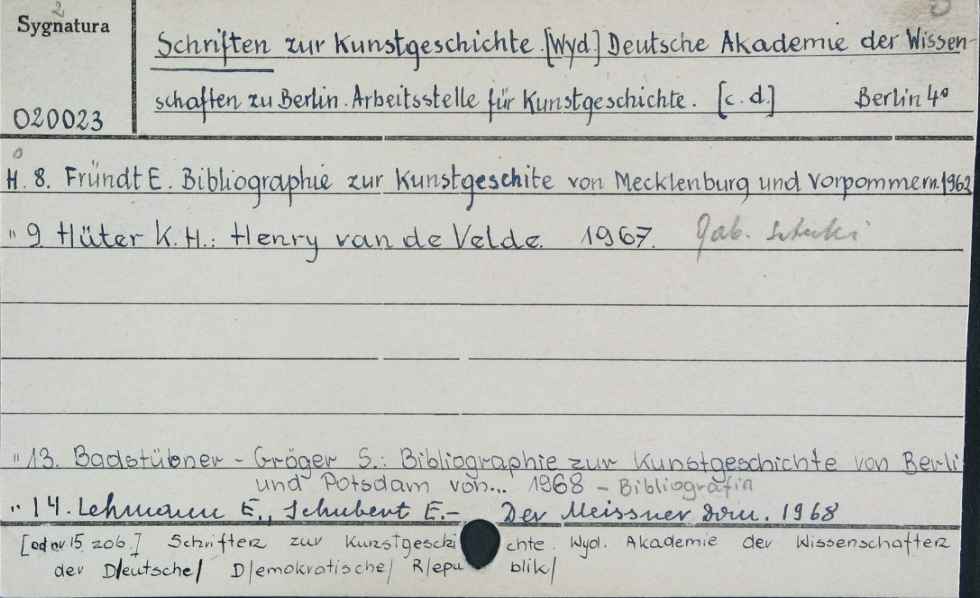 2
Sygnatura
Schriften zur Kunstgeschichte. [Wyd.] Deutsche Akademie der Wissen-
schaften zu Berlin. Arbeitsstelle für Kunstgeschichte. [c.d.] Berlin 4°
020023
H. 8. Fründt E. Bibliographie zur Kunstgeschite von Mecklenburg und Vorpommern. 1962
" 9. Hüter K.H.: Henry van de Velde. 1967. Gab. Sztuki
" 13. Badstübner - Gröger S.: Bibliographie zur Kunstgeschichte von Berli
und Potsdam von... 1968 - Bibliografia
" 14. Lehmann E., Schubert E.- Der Meissner Dom. 1968
[od nr 15 zob.] Schriften zur Kunstgeschichte. Wyd. Akademie der Wissenschaften
der D/eutsche/ D/emokratische/ R/epublik/